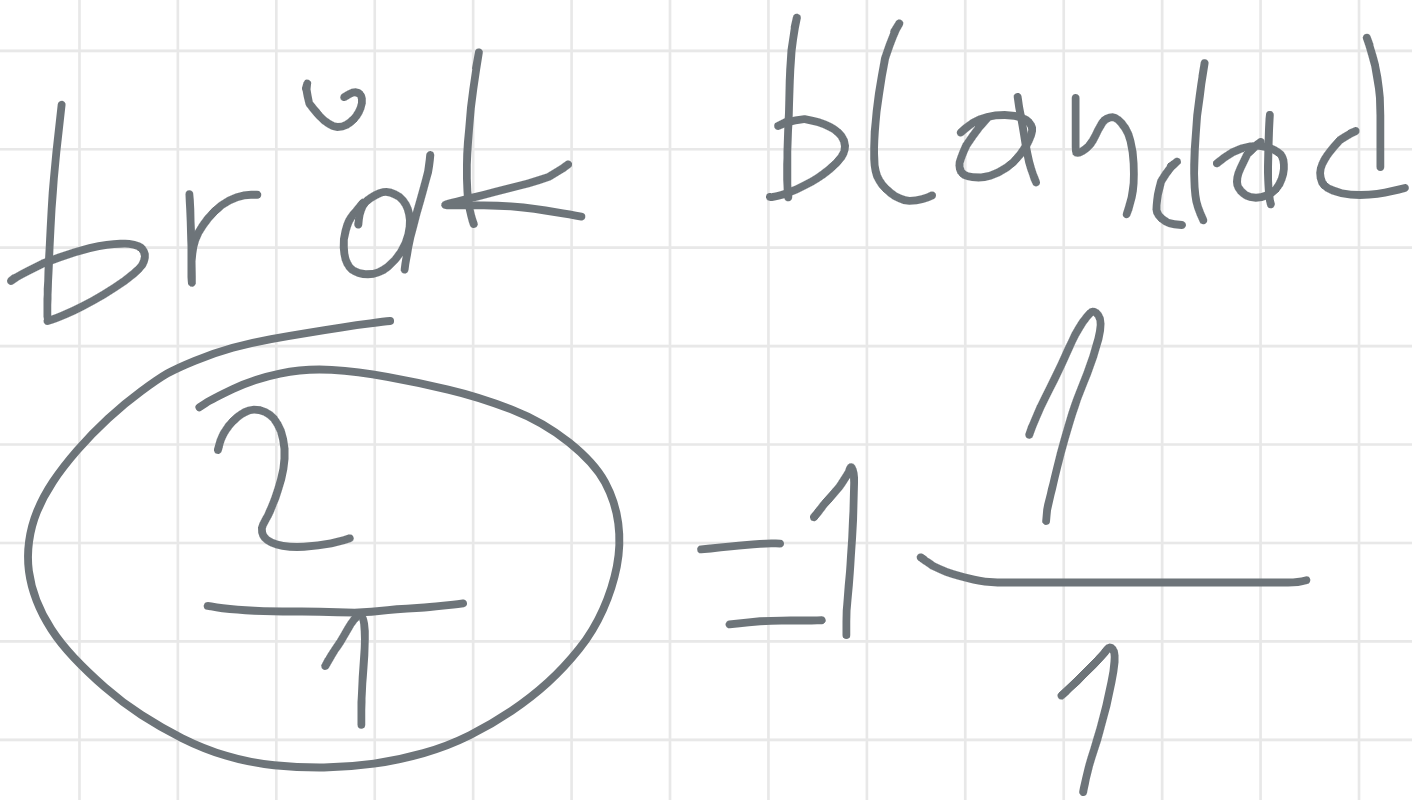 bråk blandad
2/1 = 1 1/1